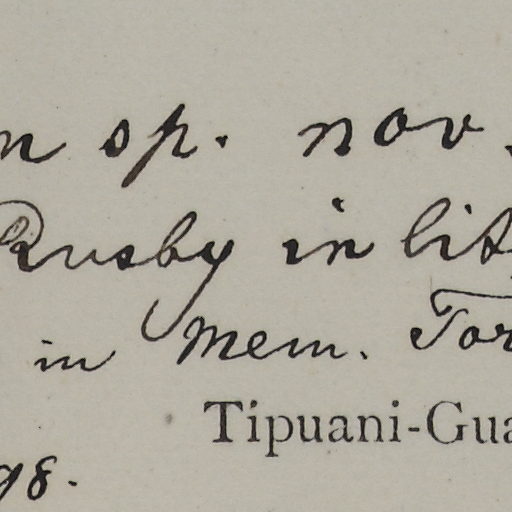 n sp. nov.
Rusby in lit
in Mem. Tor
Tipuani-Gua
98.